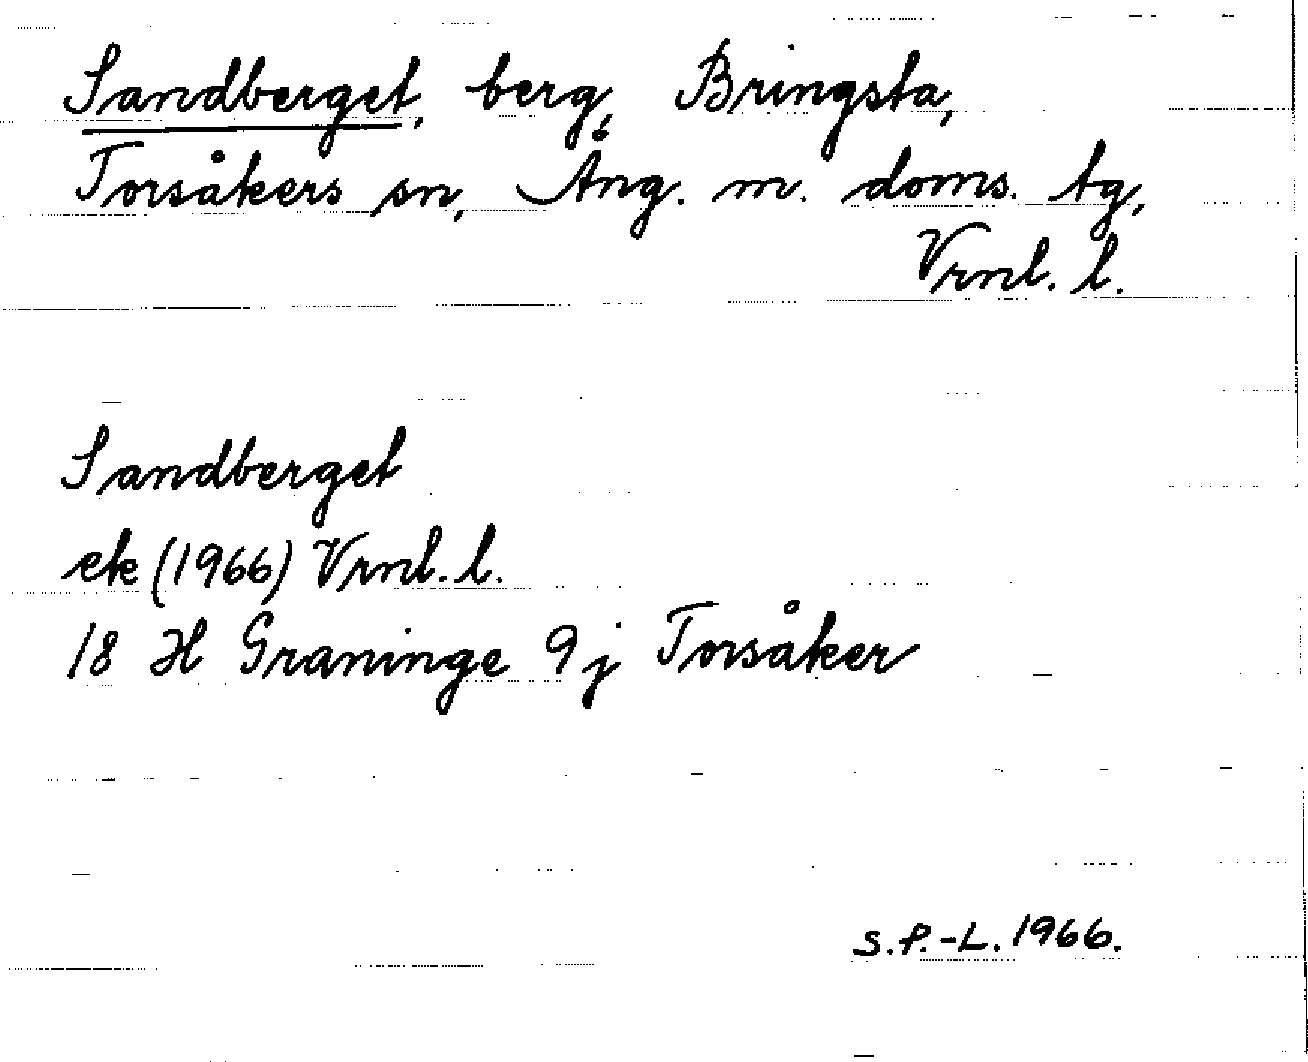 Sandberget, berg, Bringsta,
Torsåkers sn, Ång. m. doms. tg,
Vrnl. l.
Sandberget
ek (1966) Vrnl. l.
18 H Graninge 9j Torsåker
S.P.-L. 1966.